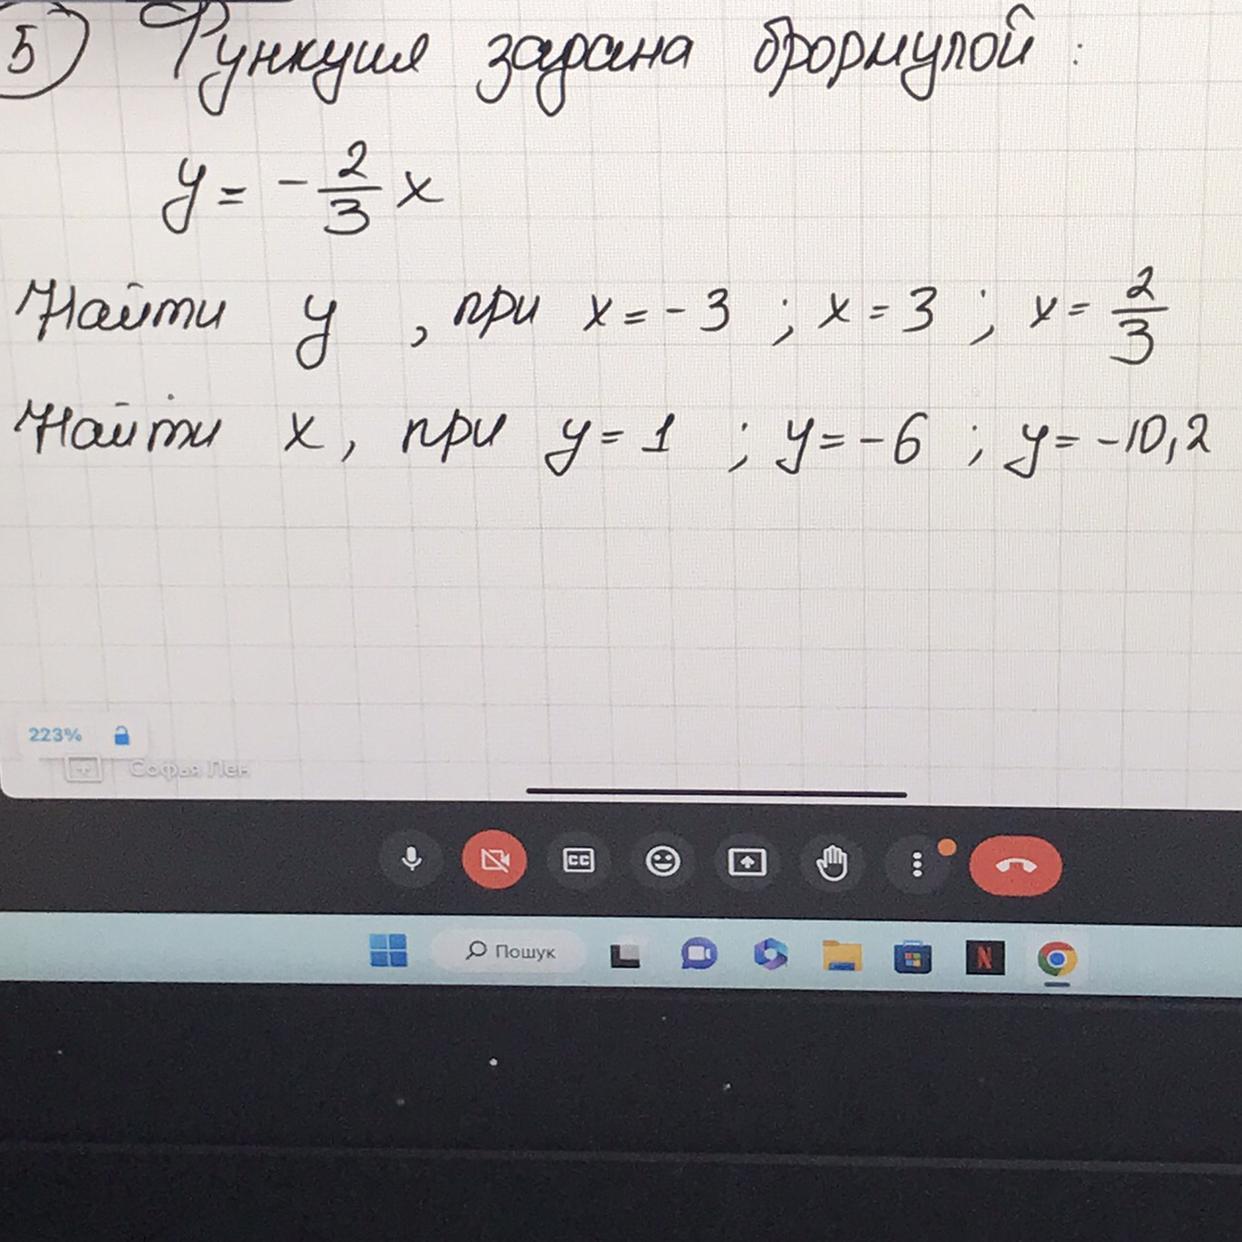 5) Функция задана формулой:
y = -2/3 x
Найти y, при x = -3 ; x = 3 ; x = 2/3
Найти x, при y = 1 ; y = -6 ; y = -10,2
223%
Софья Лен
CC
Пошук
N